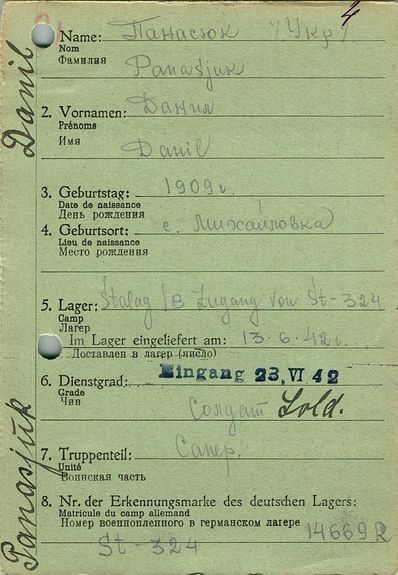 4
Name: Панасюк /Укр/
Nom
Фамилия
Panasjuk
2. Vornamen: Данил
Prénoms
Имя
Danil
3. Geburtstag: 1909 г.
Date de naissance
День рождения
4. Geburtsort: с. Михайловка
Lieu de naissance
Место рождения
5. Lager: Stalag IB Zugang von St-324
Camp
Лагерь
Im Lager eingeliefert am: 13.6.42 г.
Доставлен в лагерь (число)
Eingang 23. VI 42
6. Dienstgrad:
Grade
Чин
Солдат Sold.
7. Truppenteil: Сапер.
Unité
Воинская часть
8. Nr. der Erkennungsmarke des deutschen Lagers:
Matricule du camp allemand
Номер военнопленного в германском лагере
14669 R
St-324
Panasjuk Danil